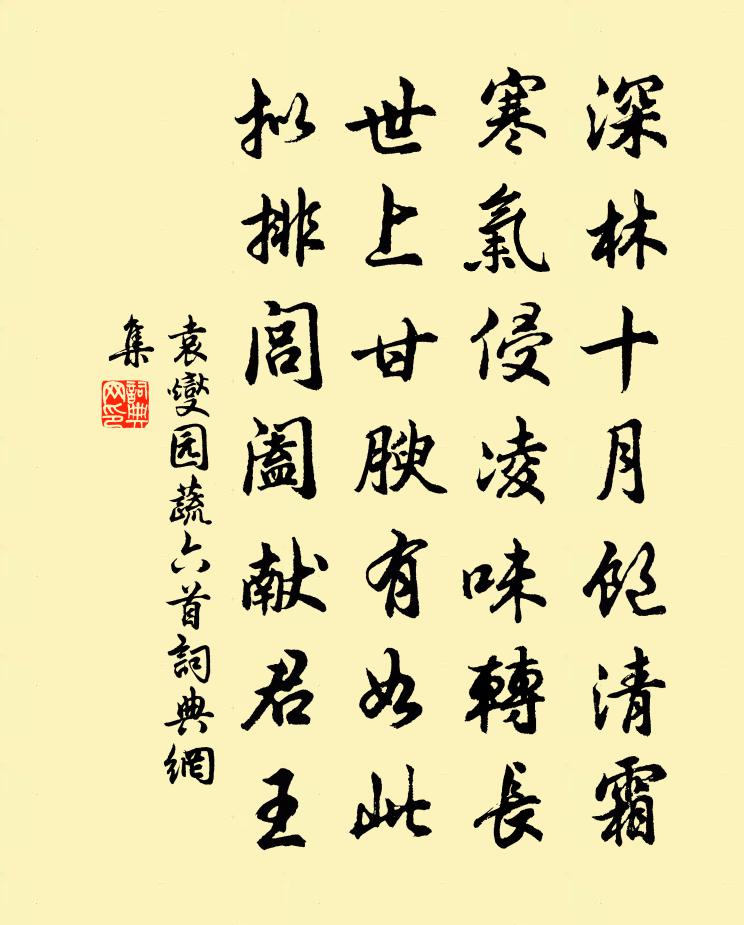 深林十月飽清霜
寒氣侵凌味轉長
世上甘腴有如此
拟排閶闔献君王
袁燮园蔬六首詞典網
集
詞典網印